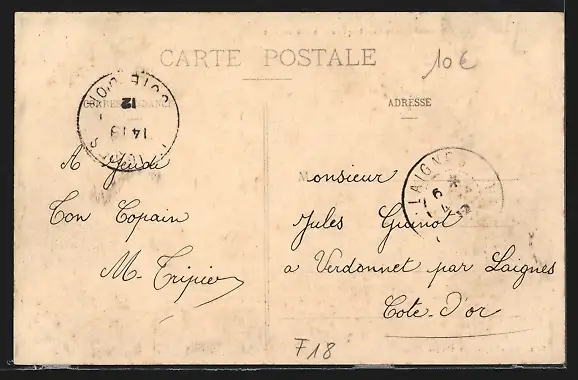 CARTE POSTALE
10€
CORRESPONDANCE
ADRESSE
CÔTE D'OR
12
14-19
A Jeudi
Ton Copain
M. Tripier
LAIGNES
6
4
12
Monsieur
Jules Guinot
a Verdonnet par Laignes
Cote-d'or
F18